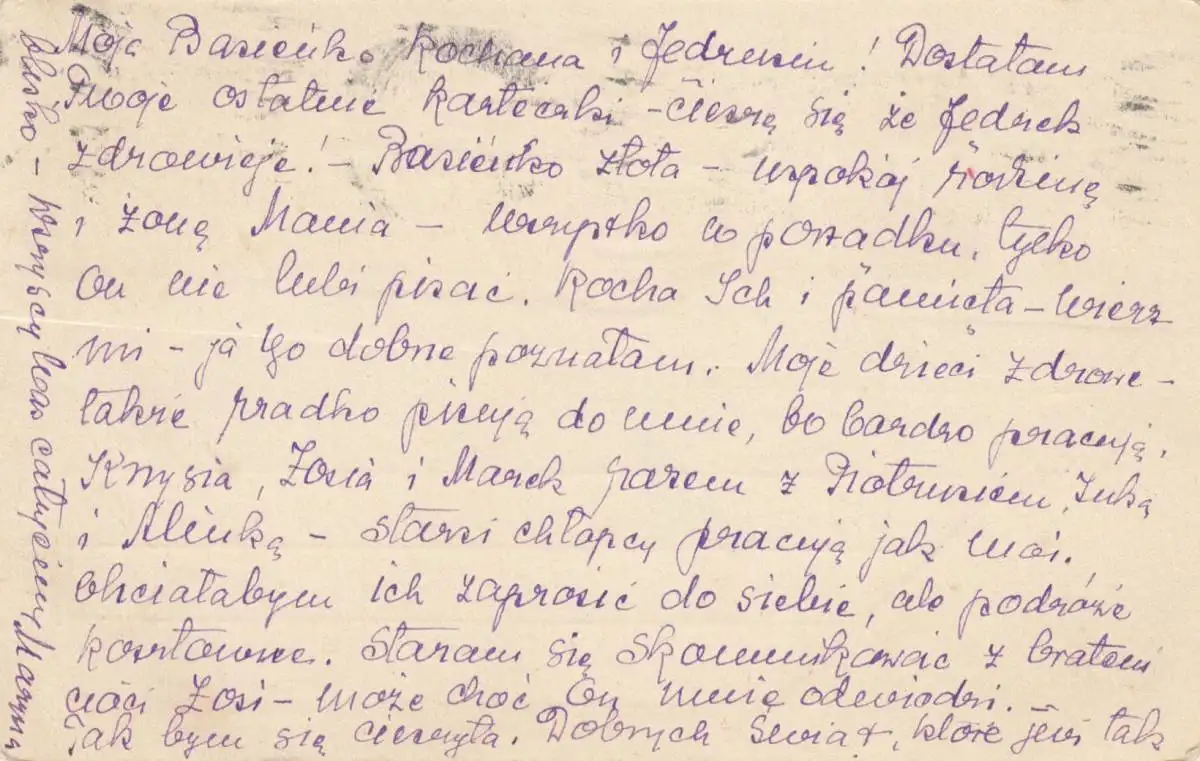 Moja Basieńko Kochana i Jędrusiu! Dostałam
Twoje ostatnie karteczki - cieszę się że Jędrek
zdrowieje! - Basieńko złota - uspokój rodzinę
i żonę Mania - wszystko w porządku, tylko
On nie lubi pisać. Kocha Ich i pamięta - wierz
mi - ja Go dobrze poznałam. Moje dzieci zdrowe -
także rzadko piszą do mnie, bo bardzo pracują.
Krysia, Zosia i Marek razem z Piotrusiem, Inką
i Alinką - starsi chłopcy pracują jak moi.
Chciałabym ich zaprosić do siebie, ale podróże
kosztowne. Staram się skomunikować z bratem
cioci Zosi - może choć On mnie odwiedzi. -
Tak bym się cieszyła. Dobrych Świąt, które już tak
blisko - Wszyscy Was całujemy Maryna